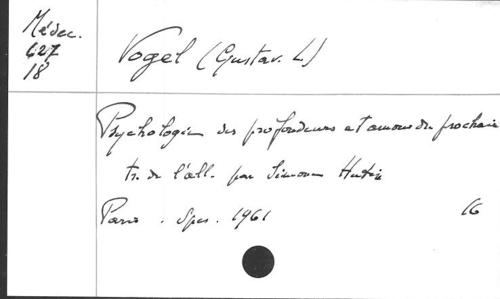 Médec.
627
18
Vogel (Gustav. L.)
Psychologie des profondeurs et amour du prochain
tr. de l'all. par Simone Hutin
Paris . Spes . 1961 16